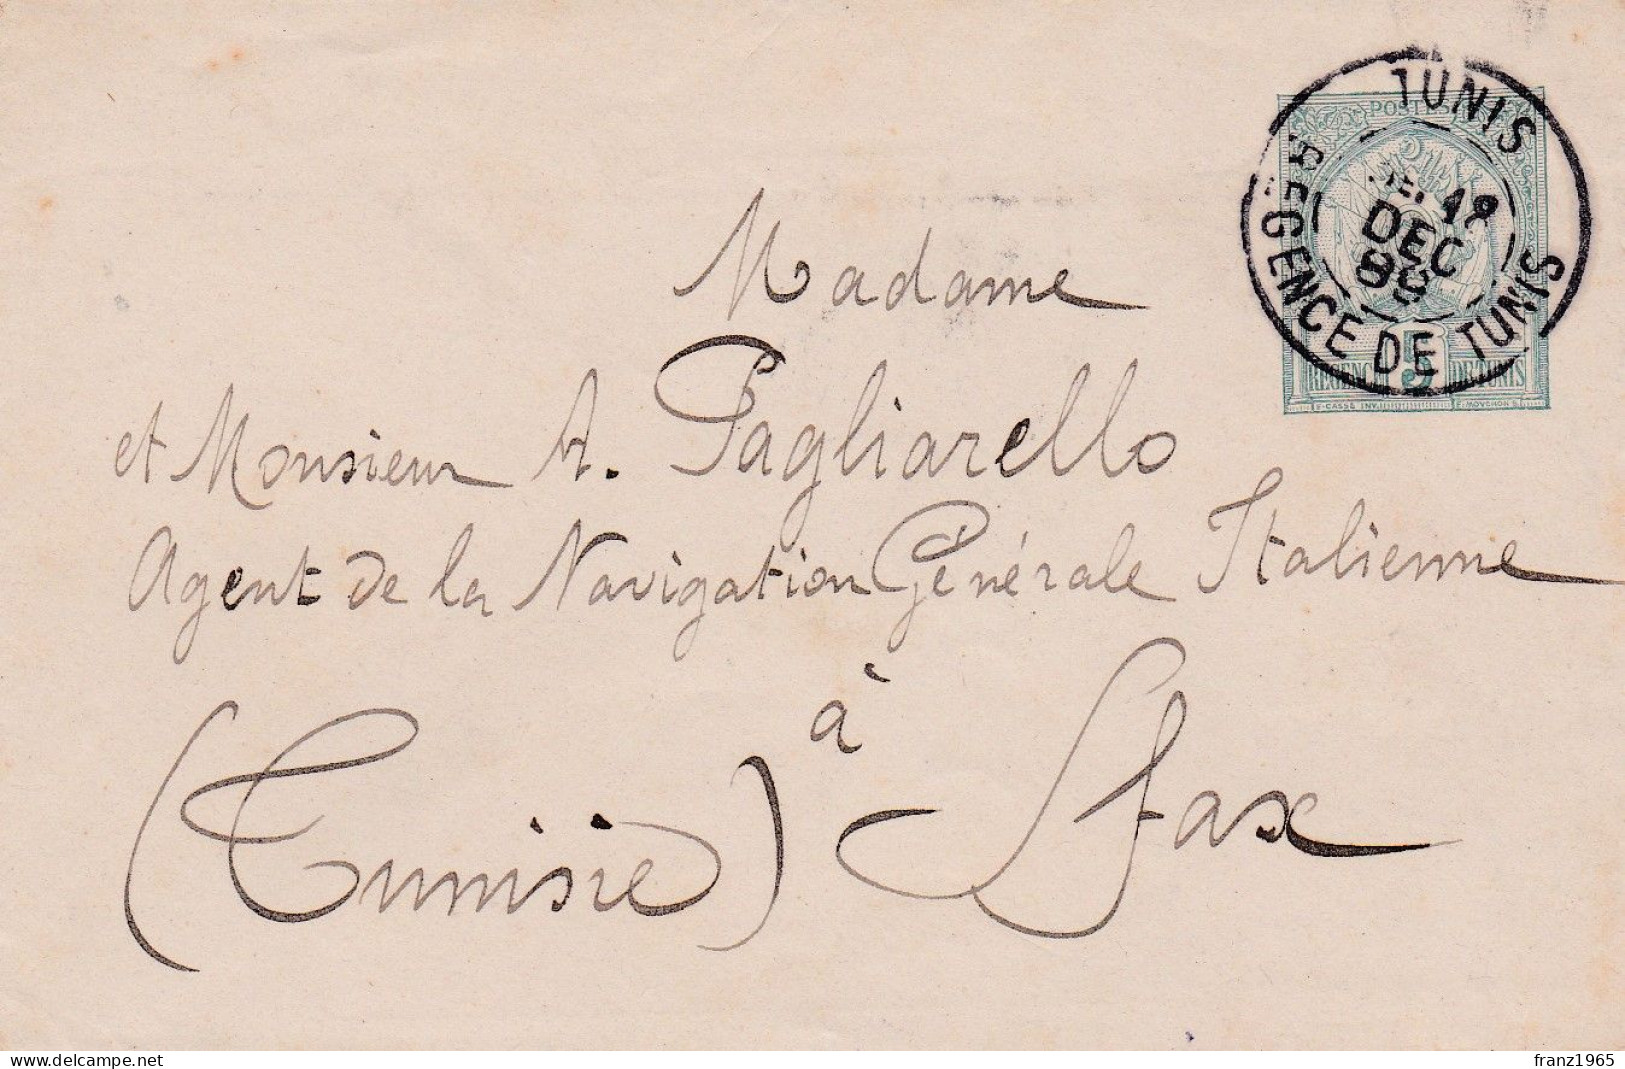 TUNIS
DEC
REGENCE DE TUNIS
POSTES
5
REGENC DE TUNIS
E. CASSE INV. E. MOUCHON S.
Madame
et Monsieur A. Pagliarello
Agent de la Navigation Générale Italienne
à
(Tunisie) Sfax
www.delcampe.net
franz1965